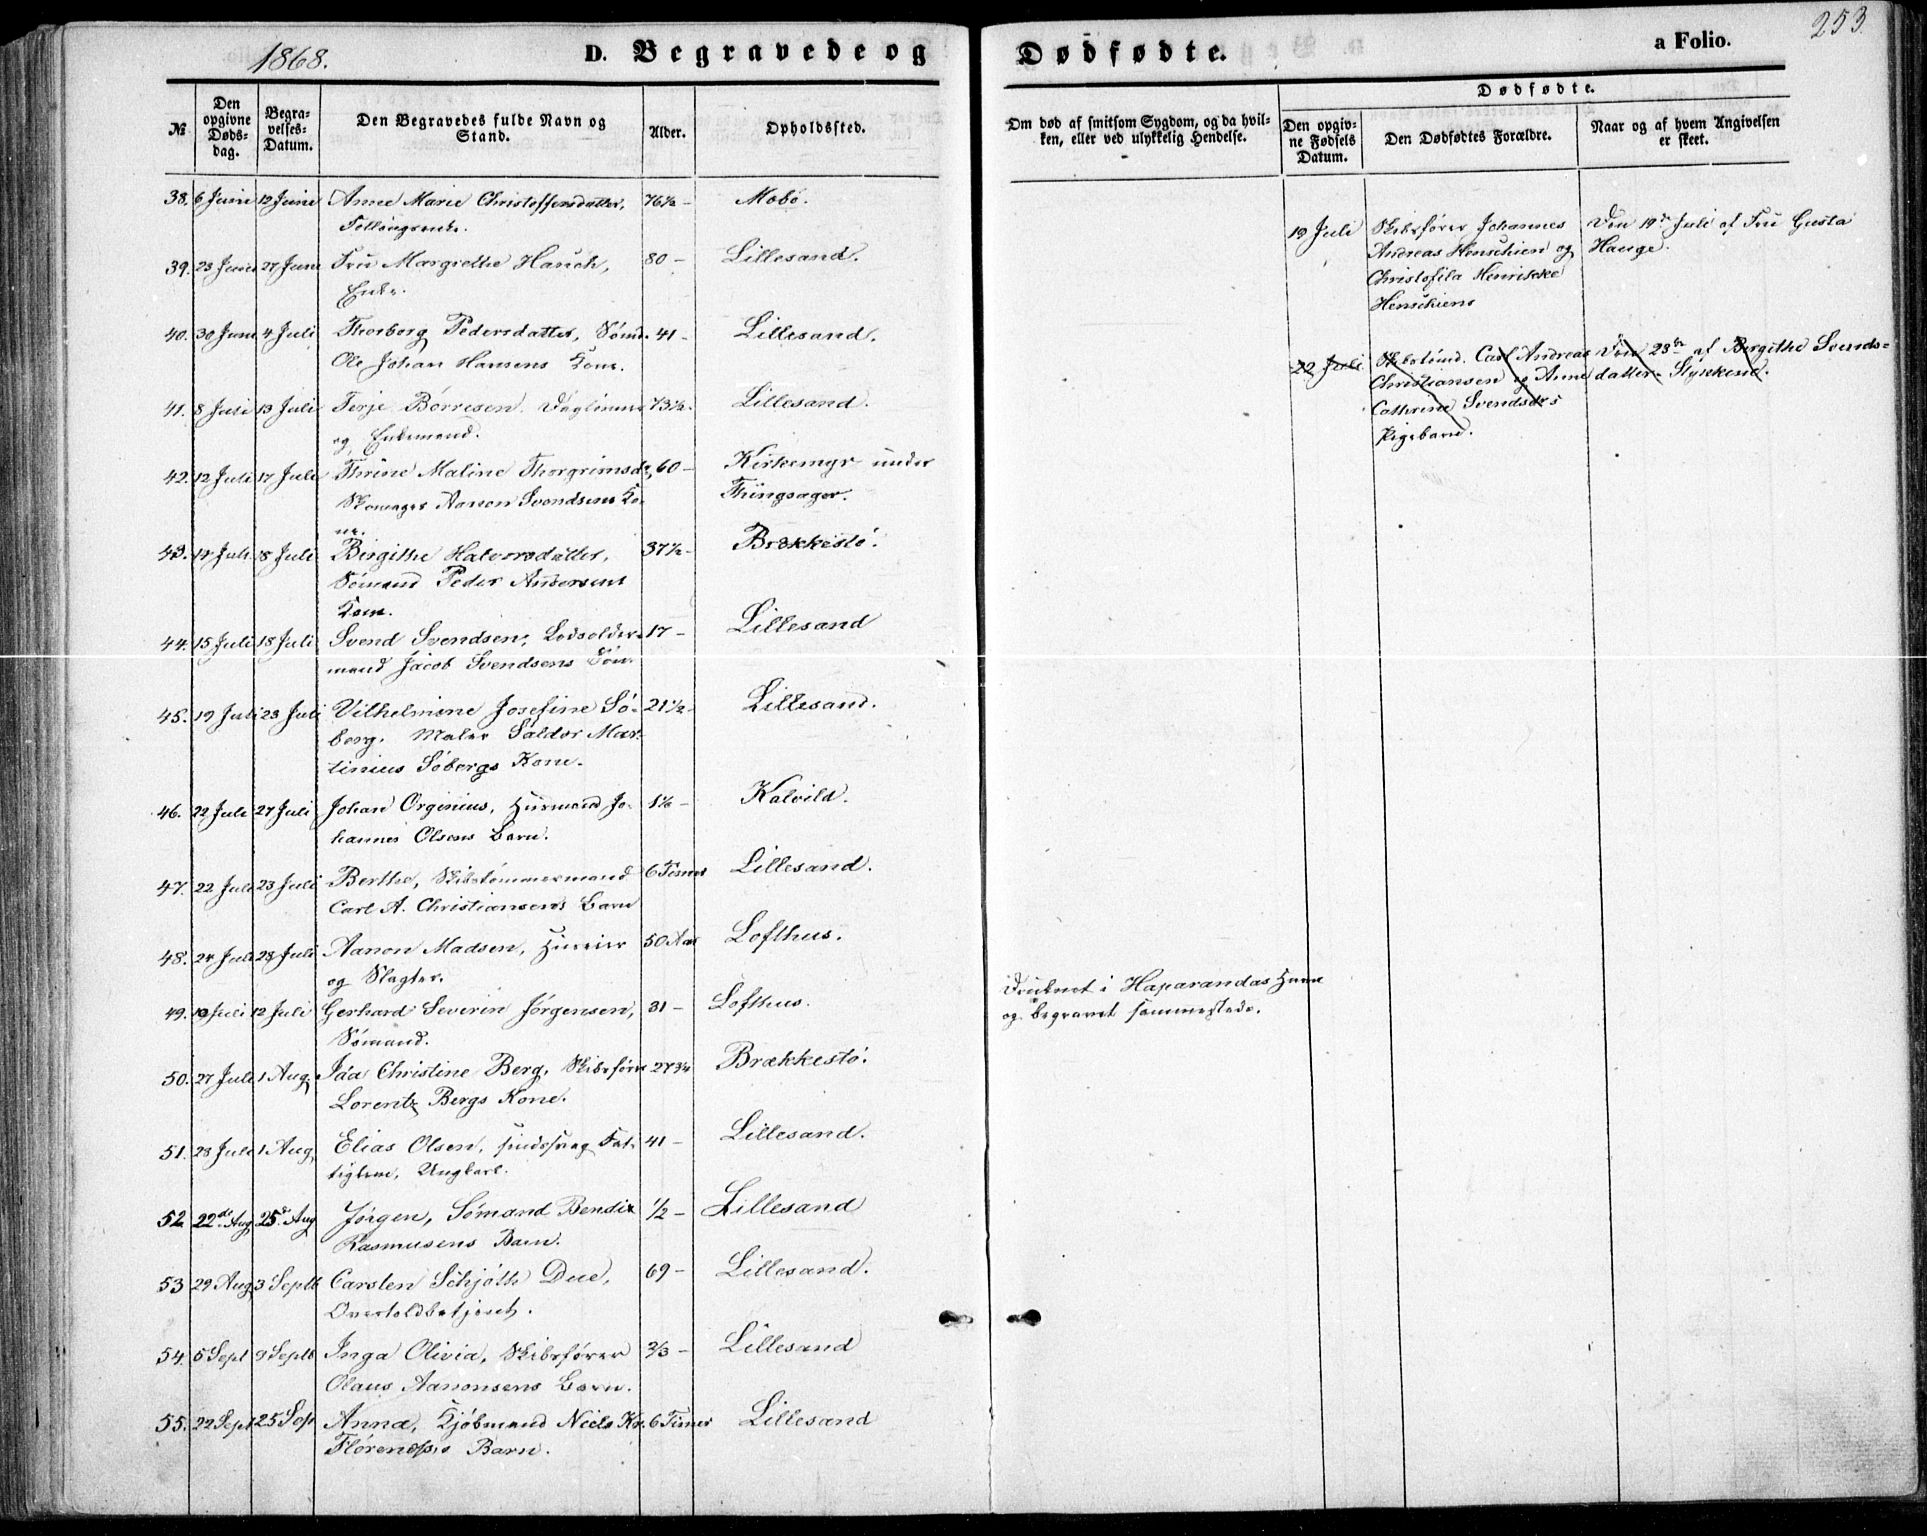 1868.
D. Begravede og Dødfødte.
a Folio.
253.
№
Den opgivne Døds-dag.
Begra-velses-Datum.
Den Begravedes fulde Navn og Stand.
Alder.
Opholdssted.
Om død af smitsom Sygdom, og da hvil-ken, eller ved ulykkelig Hendelse.
Dødfødte.
Den opgiv-ne Fødsels Datum.
Den Dødfødtes Forældre.
Naar og af hvem Angivelsen er skeet.
38. 6 Juni 12 Juni Anne Marie Christoffersdatter, 76½ – Mobø.
39. 23 Juni 27 Juni Fru Margrethe Hauch, 80 – Lillesand.
Enke.
40. 30 Juni 4 Juli Thorborg Pedersdatter, Sømd. 41 – Lillesand.
Ole Johan Hansens Kone.
41. 8 Juli 13 Juli Terje Børresen, 73½. Lillesand.
og Enkemand.
42. 12 Juli 17 Juli Thrine Maline Thorgrimsdr, 60 – Kirkemyr under
Skomager Aanon Svendsens Ko- Thingsager.
ne.
43. 14 Juli 18 Juli Birgithe Halvorsdatter, 37½ – Brækkestø.
Sømand Peder Andersens
Kone.
44. 15 Juli 18 Juli Svend Svendsen, Lodsolder- 17 – Lillesand
mand Jacob Svendsens Søn.
45. 19 Juli 23 Juli Vilhelmine Josefine Sø- 21½ – Lillesand.
berg. Maler Saldor Mar-
tinius Søbergs Kone.
46. 22 Juli 27 Juli Johan Orginius, Husmand Jo- 1½ – Kalvild.
hannes Olsens Barn.
47. 22 Juli 23 Juli Berthe, Skibstømmermand 6 Timer Lillesand.
Carl A. Christiansens Barn
48. 24 Juli 28 Juli Aanon Madsen, Huseier 50 Aar Lofthus.
og Slagter.
49. 10 Juli 12 Juli Gerhard Severin Jørgensen, 31 – Lofthus. Druknet i Haparandas Havn
Sømand. og begravet sammesteds.
50. 27 Juli 1 Aug. Ida Christine Berg, Skibsfører 27¾ Brækkestø.
Lorentz Bergs Kone.
51. 28 Juli 1 Aug. Elias Olsen, sindssvag Fat- 41 – Lillesand.
tiglem, Ungkarl.
52 22de Aug 25d Aug Jørgen, Sømand Bendix ½ – Lillesand
Rasmusens Barn.
53 29 Aug. 3 Septb Carsten Schjøtth Due, 69 – Lillesand.
Overtoldbetjent.
54. 5 Sept 9 Septb Inga Olivia, Skibsfører ⅔ – Lillesand
Olaus Aanonsens Barn.
55. 22 Sept 25 Sep Anna, Kjøbmand Niels Kr. 6 Timer Lillesand
Flørenæss's Barn.
19 Juli Skibsfører Johannes Den 19de Juli af Fru Gusta
Andreas Henschien og Hauge.
Christofila Henrikke
Henschiens
22 Juli Skibstømd. Carl Andreas Den 23de af Birgithe Svends-
Christiansen og Anne datter Styrkend.
Cathrine Svendsdrs
Pigebarn.